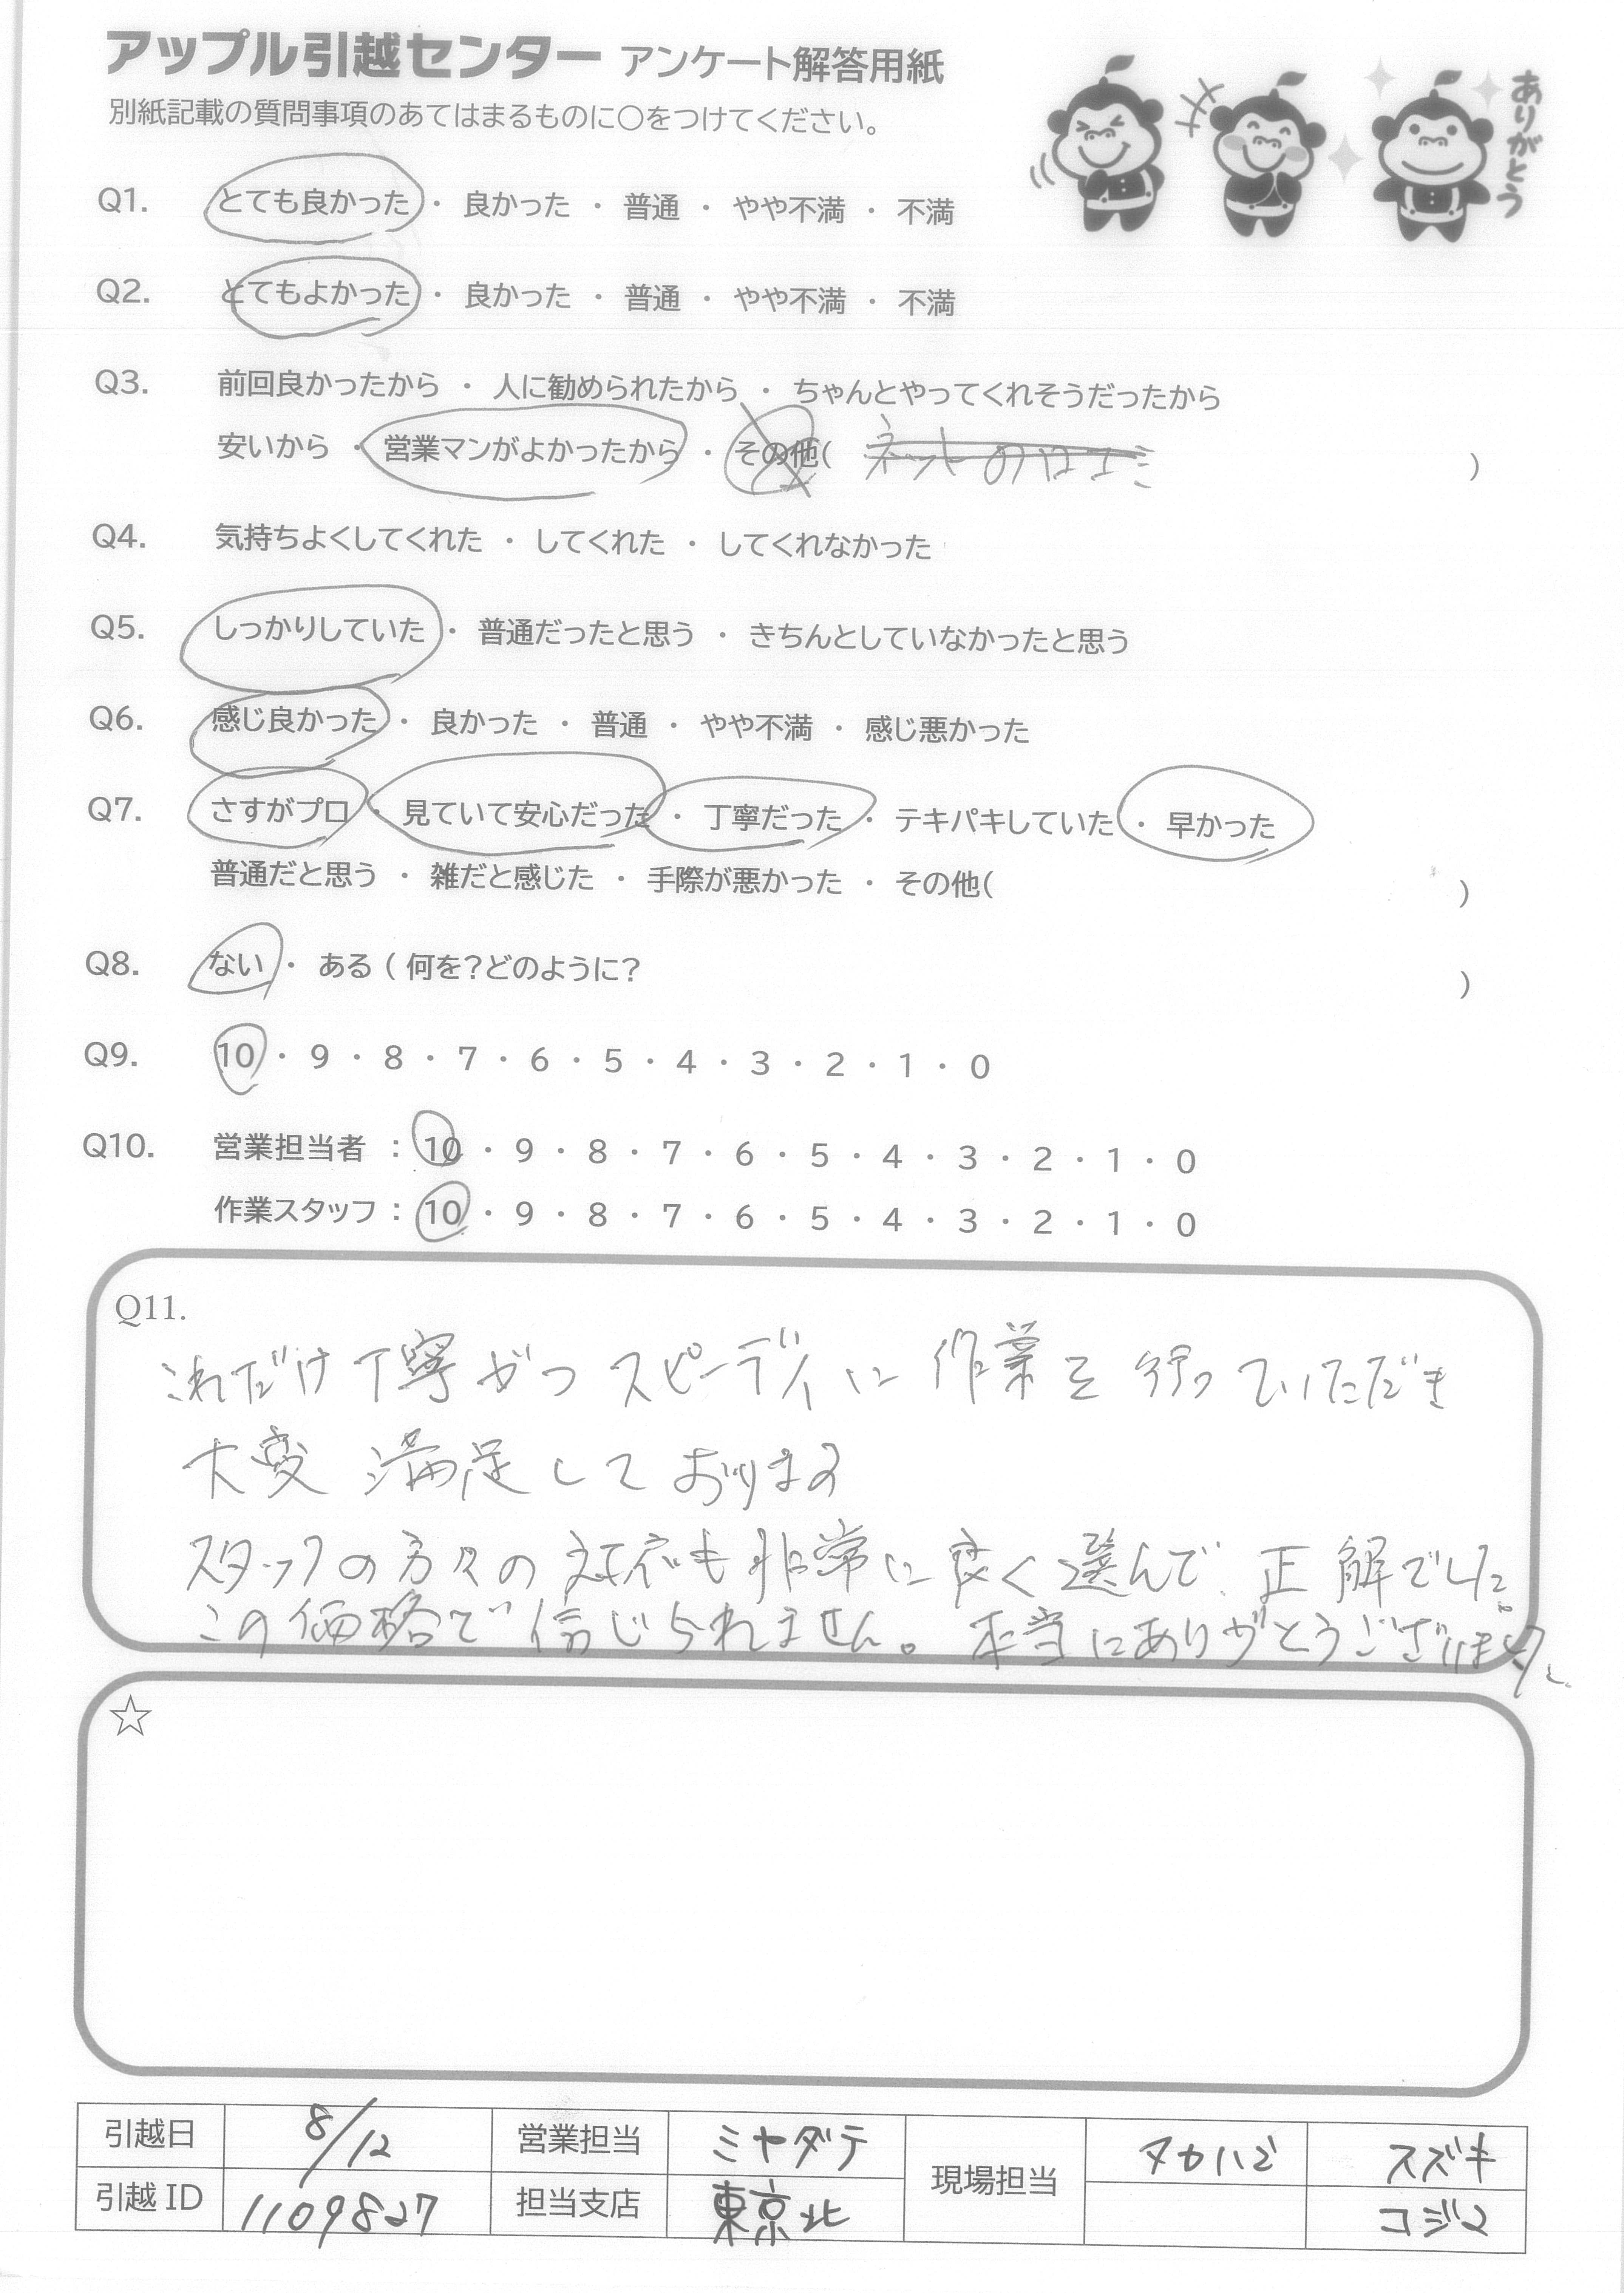 アップル引越センター アンケート解答用紙
別紙記載の質問事項のあてはまるものに〇をつけてください。
ありがとう
Q1. とても良かった ・ 良かった ・ 普通 ・ やや不満 ・ 不満
Q2. とてもよかった ・ 良かった ・ 普通 ・ やや不満 ・ 不満
Q3. 前回良かったから ・ 人に勧められたから ・ ちゃんとやってくれそうだったから
安いから ・ 営業マンがよかったから ・ その他( ネットの口コミ )
Q4. 気持ちよくしてくれた ・ してくれた ・ してくれなかった
Q5. しっかりしていた ・ 普通だったと思う ・ きちんとしていなかったと思う
Q6. 感じ良かった ・ 良かった ・ 普通 ・ やや不満 ・ 感じ悪かった
Q7. さすがプロ ・ 見ていて安心だった ・ 丁寧だった ・ テキパキしていた ・ 早かった
普通だと思う ・ 雑だと感じた ・ 手際が悪かった ・ その他( )
Q8. ない ・ ある ( 何を?どのように? )
Q9. 10 ・ 9 ・ 8 ・ 7 ・ 6 ・ 5 ・ 4 ・ 3 ・ 2 ・ 1 ・ 0
Q10. 営業担当者 : 10 ・ 9 ・ 8 ・ 7 ・ 6 ・ 5 ・ 4 ・ 3 ・ 2 ・ 1 ・ 0
作業スタッフ : 10 ・ 9 ・ 8 ・ 7 ・ 6 ・ 5 ・ 4 ・ 3 ・ 2 ・ 1 ・ 0
Q11.
これだけ丁寧かつスピーディに作業を行っていただき
大変満足しております
スタッフの方々の対応も非常に良く選んで正解でした。
この価格で信じられません。本当にありがとうございました。
☆
引越日 8/12 営業担当 ミヤダテ 現場担当 タカハシ スズキ
引越ID 1109827 担当支店 東京北 コジマ